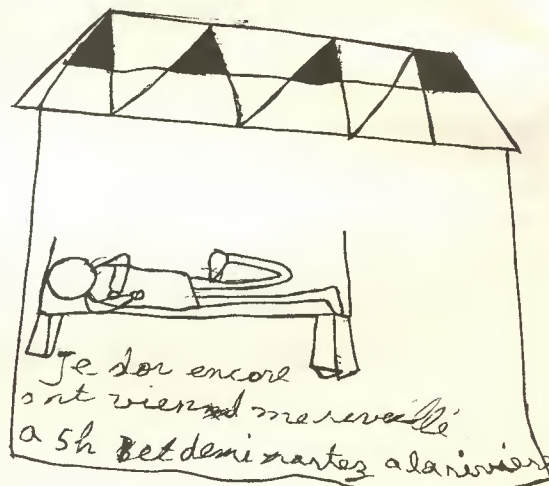 Je dor encore
ont viend me reveillé
a 5h et demi partez a la riviere